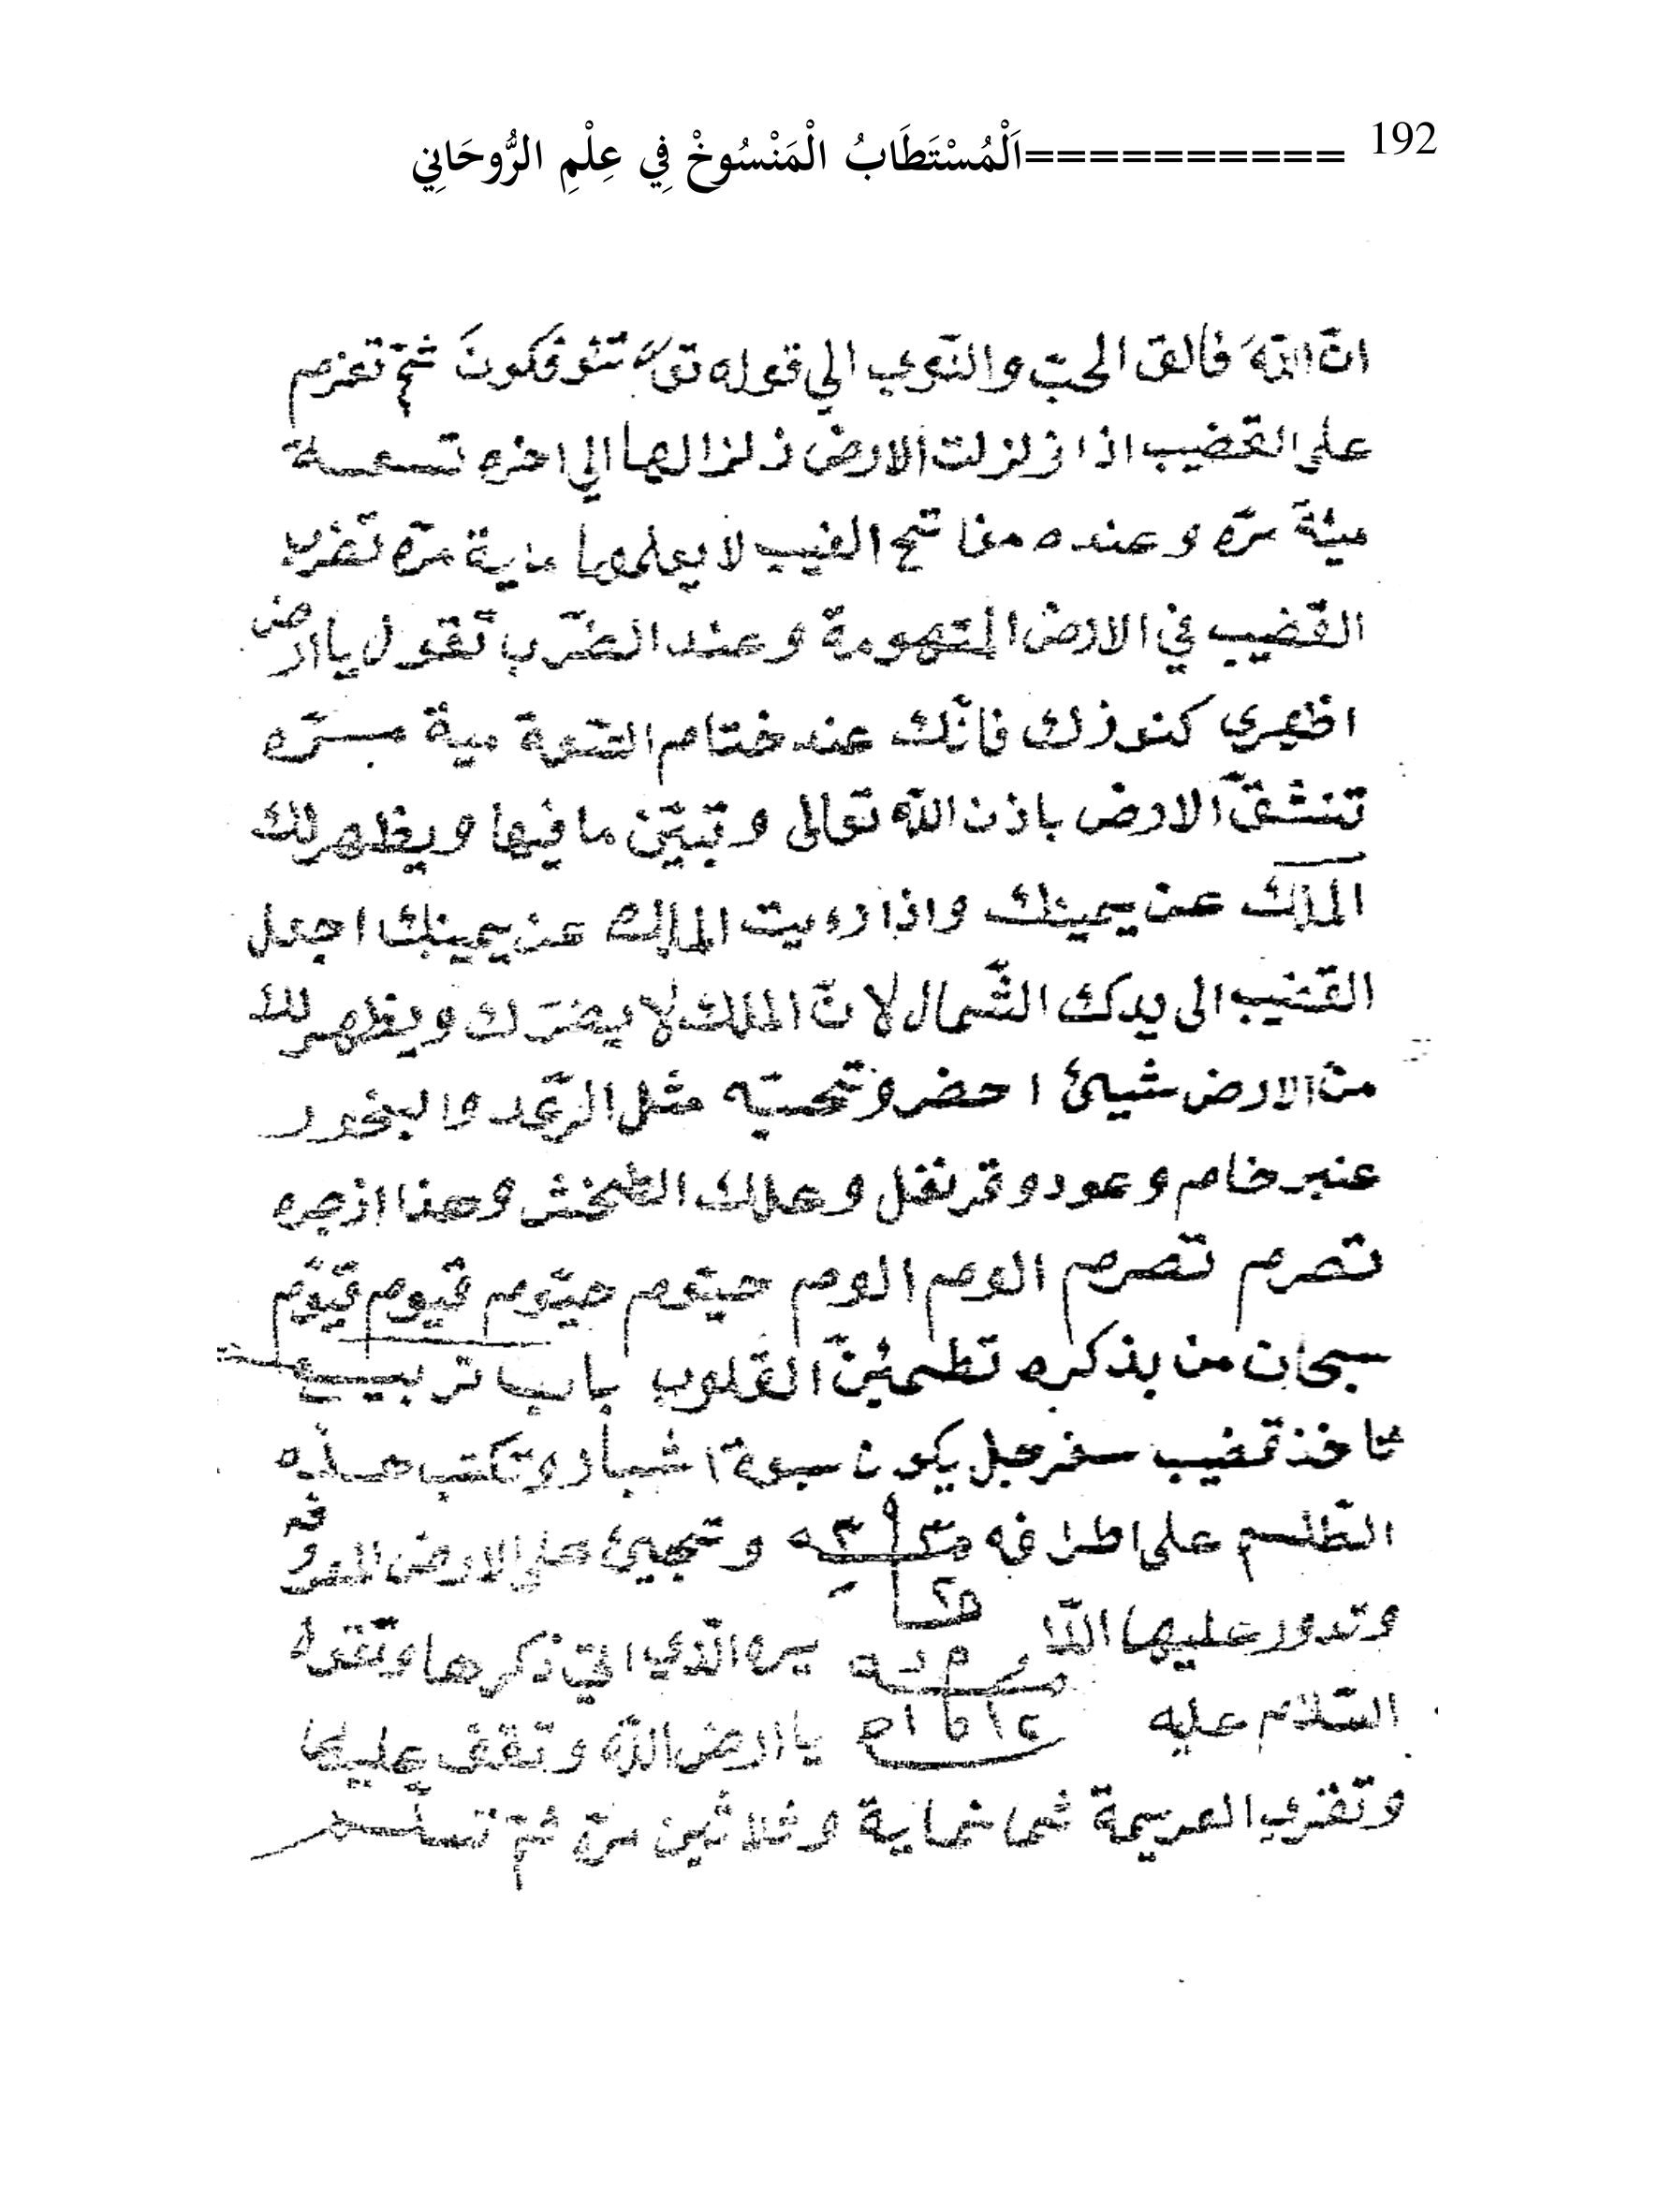 192 ==========اَلْمُسْتَطَابُ الْمَنْسُوخْ فِي عِلْمِ الرُّوحَانِي
انّ اللّهَ فالق الحبّ والنّوي الي قوله تؤفكونَ ثمّ تعزم
على القضيب اذا زلزلت الارض زلزالها الي اخره تسعة
ميئة مرّه وعنده مفاتح الغيب لا يعلمها مية مرّه تضرب
القضيب في الارض المتهومة وعند الضّرب تقول يا ارض
اظهري كنوزك فانّك عند ختام مية مرّه
تنشقّ الارض باذن اللّه تعالى وتبيّن ما فيها ويظهر لك
الملك عن يمينك واذا رءيت الملك عن يمينك اجعل
القضيب الى يدك الشّمال لانّ الملك لا يضرّك ويظهر لك
من الارض شيئ احضر وتحسّه مثل الرّعد والبخور
عنبر خام وعود وقرنفل وعلك وهذا ازجره
تصرم تصرم الوم الوم حيّوم حيّوم قيوم قيّوم
سبحان من بذكره تطمئنّ القلوب باب تربيع
تاخذ قضيب سفرجل يكون سبعة اشبار وتكتب هذه
الطّلسم على اطرافه وتجيئ على الارض
وتدور عليها الذي ذكرها وتقول
السّلام عليه يا ارض اللّه وتقف عليها
وتقري العزيمة ثمانماية وثلاثين مرّة ثمّ تسلّم